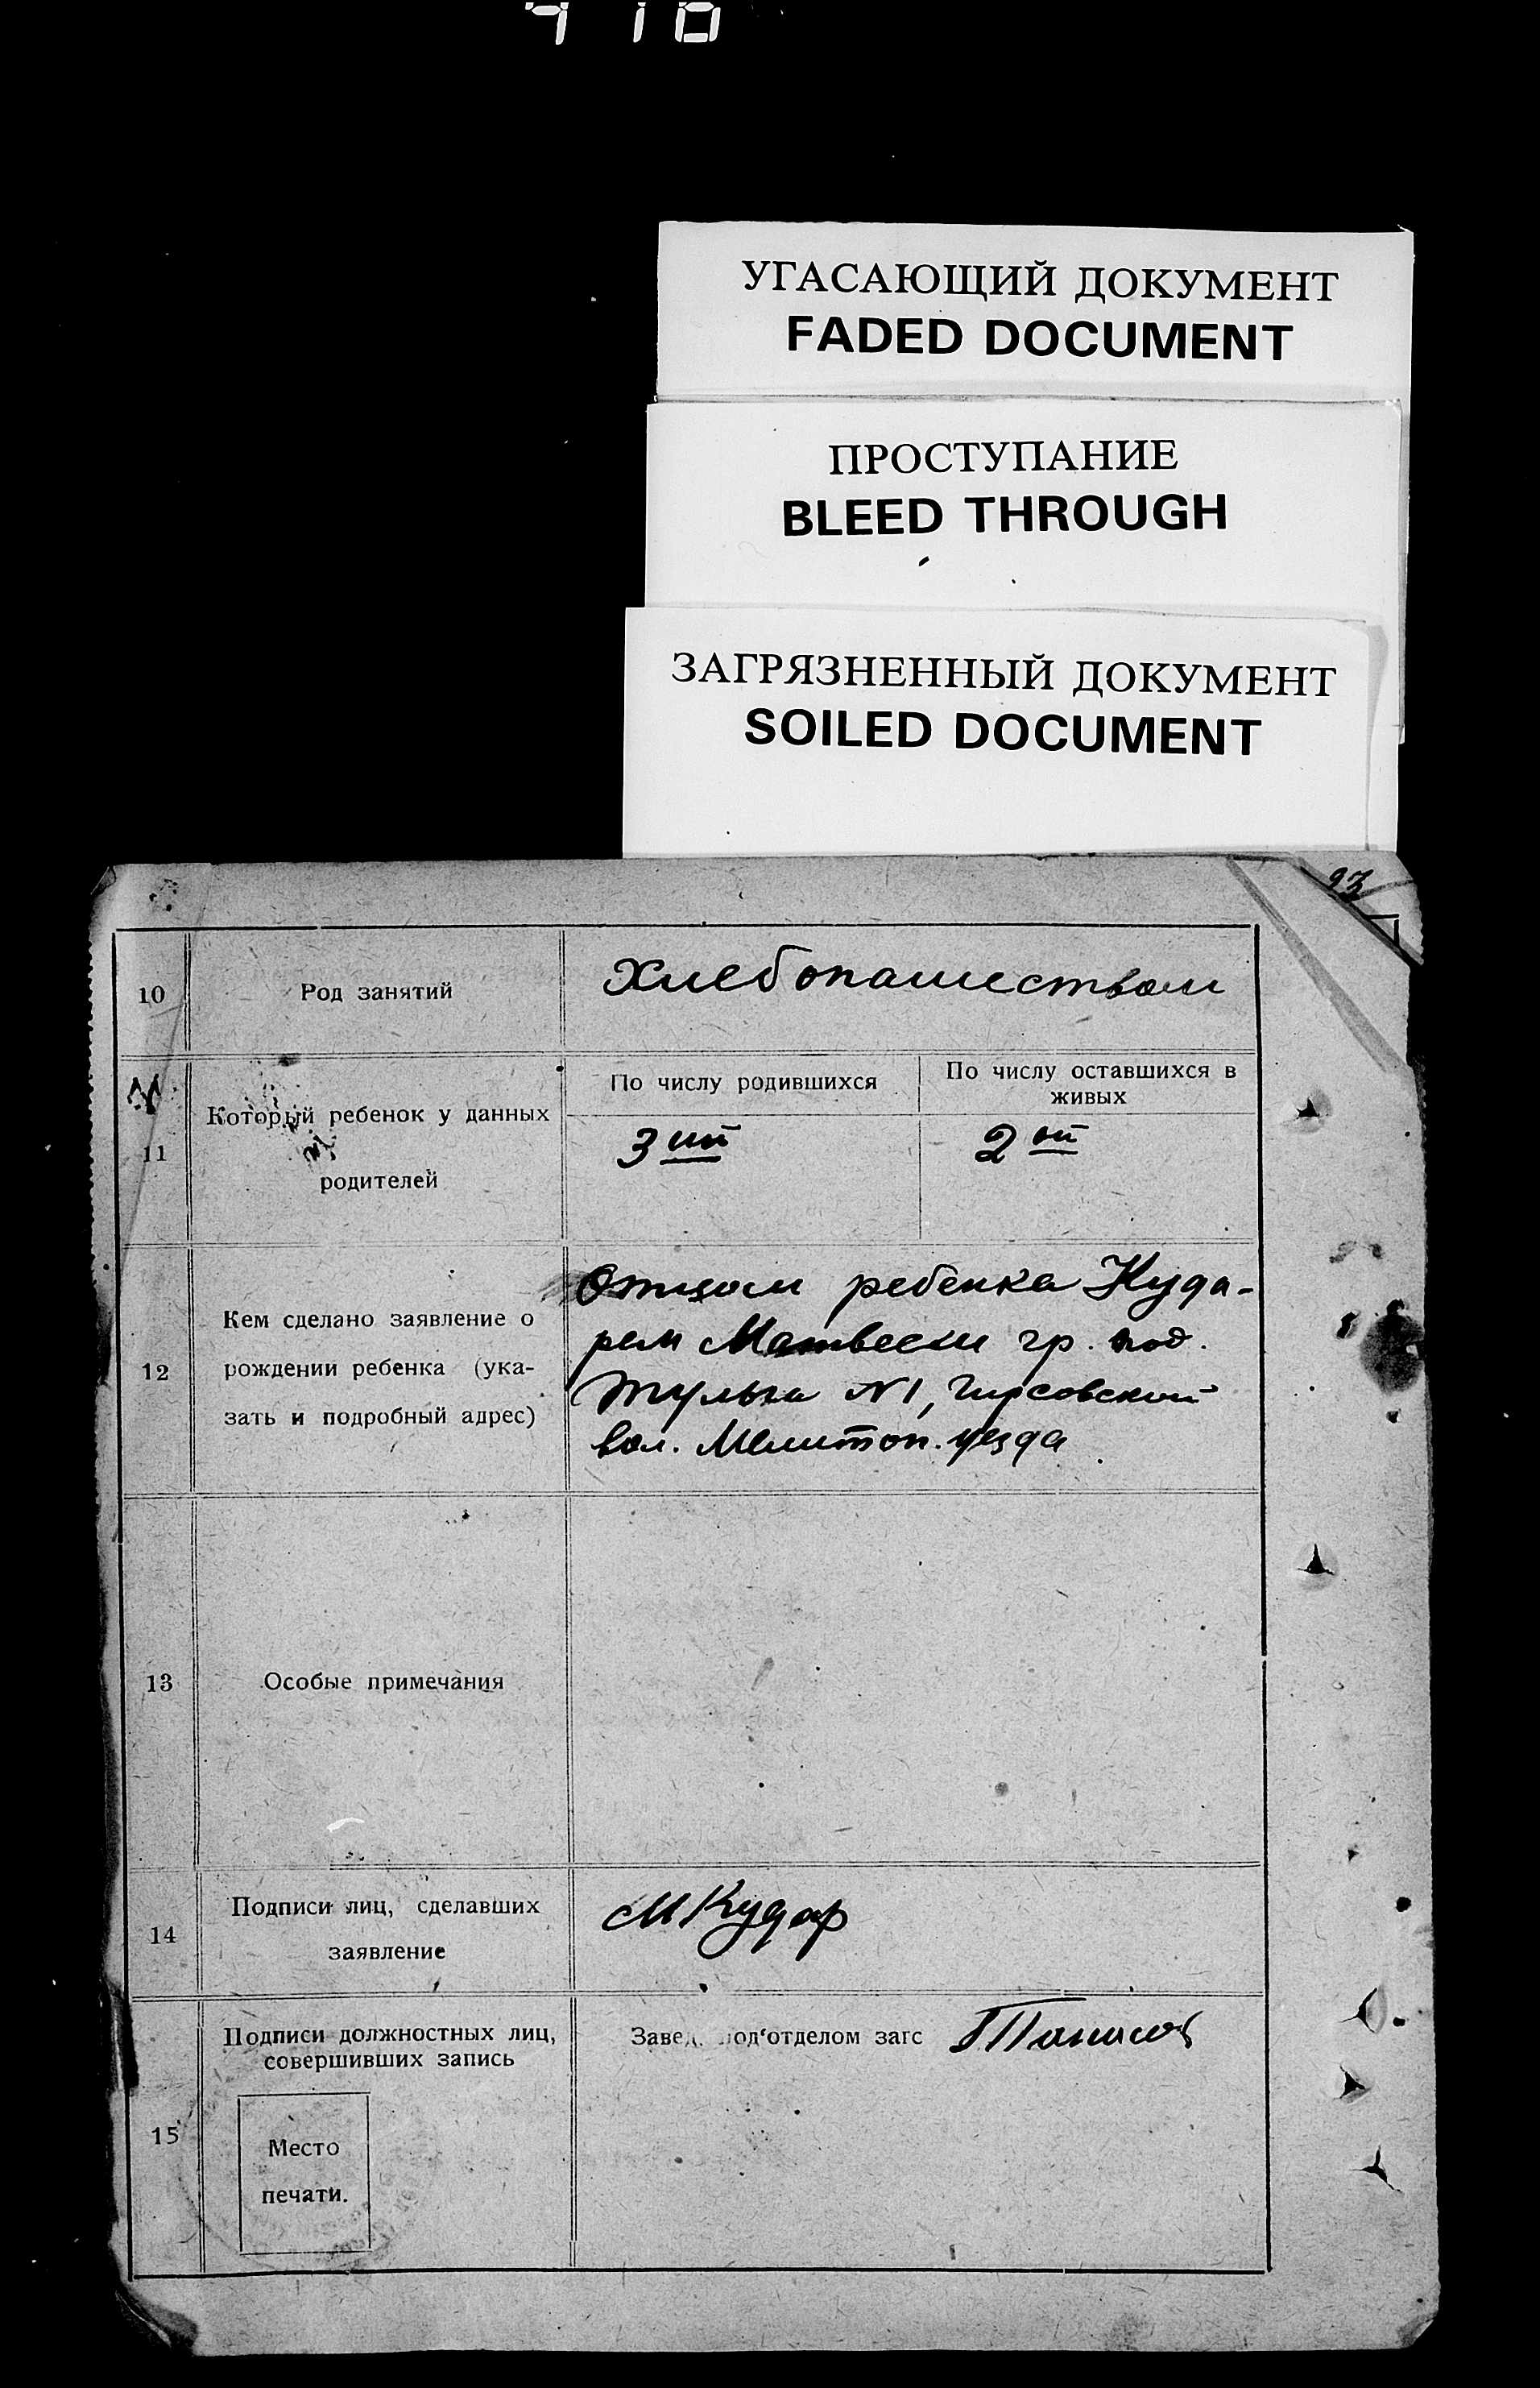 УГАСАЮЩИЙ ДОКУМЕНТ
FADED DOCUMENT
ПРОСТУПАНИЕ
BLEED THROUGH
ЗАГРЯЗНЕННЫЙ ДОКУМЕНТ
SOILED DOCUMENT
93
10 Род занятий Хлебопашеством
По числу родившихся По числу оставшихся в
живых
Который ребенок у данных 3 ий 2 ой
11
родителей
Отцом ребенка Куда-
Кем сделано заявление о
рем Матвеем гр.
12 рождении ребенка (ука-
№1, Гирсовской
зать и подробный адрес)
вол. Мелитоп. уезда
13 Особые примечания
Подписи лиц, сделавших М Кудар
14
заявление
Подписи должностных лиц, Завед. под‘отделом загс
совершивших запись
15
Место
печати.